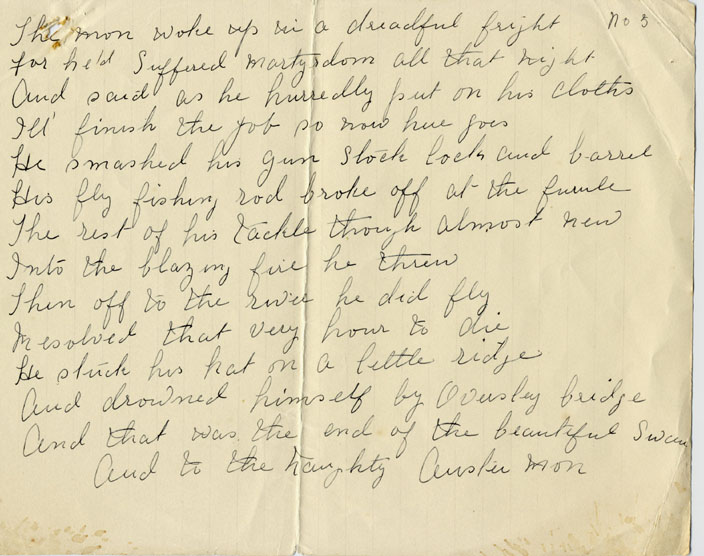 The mon woke up in a dreadful fright No 3
For he'd Suffered Martyrdom all that night
And said as he hurredly put on his cloths
Ill' finish the job so now hue goes
He smashed his gun Stock lock and barrel
His fly fishing rod broke off at the furule
The rest of his tackle though almost new
Into the blazing fire he threw
Then off to the river he did fly
Resolved that very hour to die
He stuck his hat on a little ridge
And drowned himself by Oversley bridge
And that was the end of the beautiful Swan
And to the naughty Aulster Mon